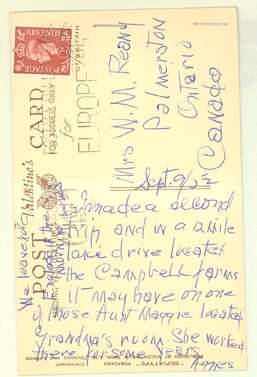 POSTAGE REVENUE
VALENTINE'S
POST CARD
FOR ADDRESS ONLY
for
EUROPE
Mrs W. M. Reany
Palmerston
Ontario
Canada
Sept. 9/52
made a second
trip and in a mile
drive located
the Campbell farms
it may have on one
of those Aunt Maggie located
Grandma's room. She worked
there for some years
Agnes
We leave
"SEPIATYPE" POSTCARD